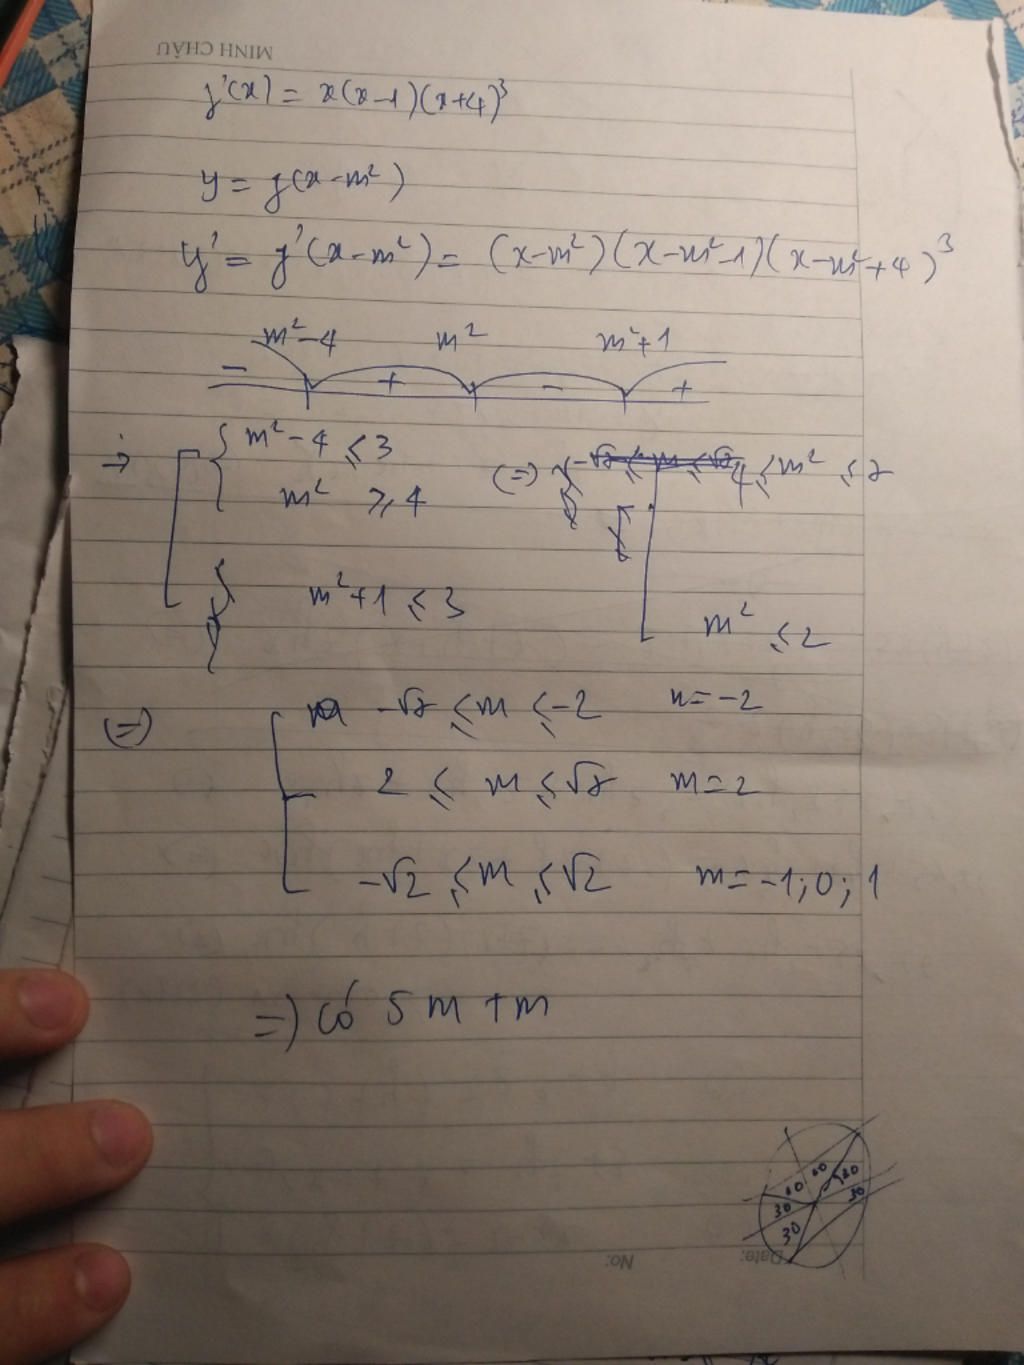 MINH CHÂU
f'(x) = x(x-1)(x+4)³
y = f(x-m²)
y' = f'(x-m²) = (x-m²)(x-m²-1)(x-m²+4)³
m²-4 m² m²+1
- + - +
→ m²-4 ≤ 3 (=) 4 ≤ m² ≤ 7
m² ≥ 4
m²+1 ≤ 3 m² ≤ 2
(=) -√7 ≤ m ≤ -2 m = -2
2 ≤ m ≤ √7 m = 2
-√2 ≤ m ≤ √2 m = -1; 0; 1
=) có 5 m tm
30
30
30
30
No:
Date: